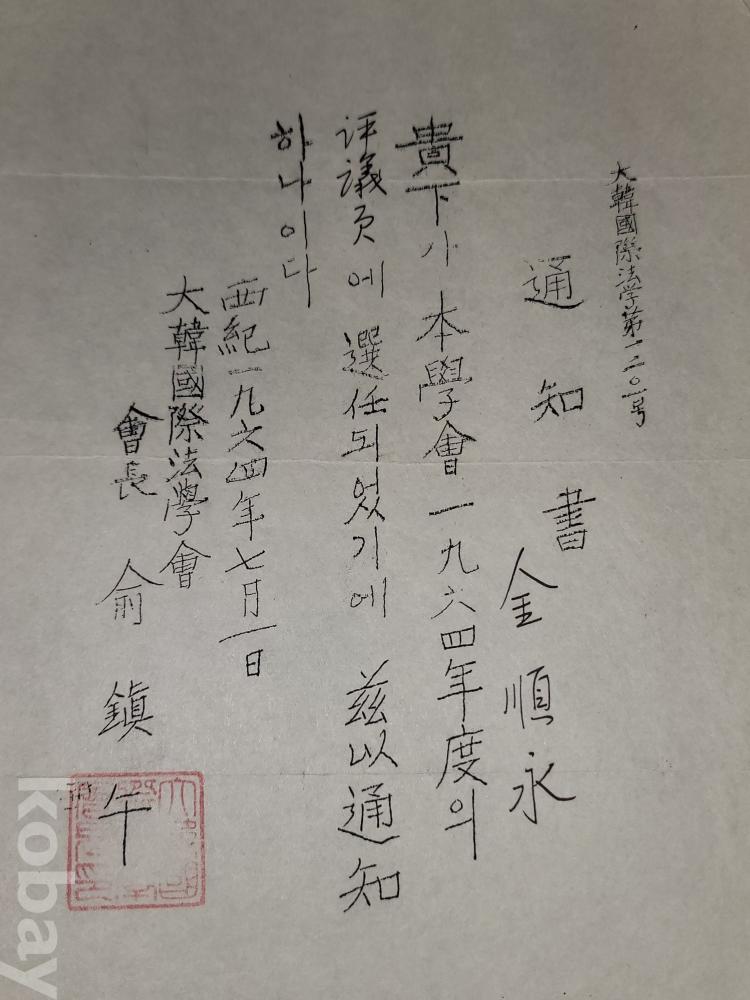 大韓國際法学第一二〇一号
通知書
金順永
貴下가 本學會 一九六四年度의
評議員에 選任되었기에 玆以通知
하나이다
西紀一九六四年七月一日
大韓國際法學會
會長 俞鎭午
kobay